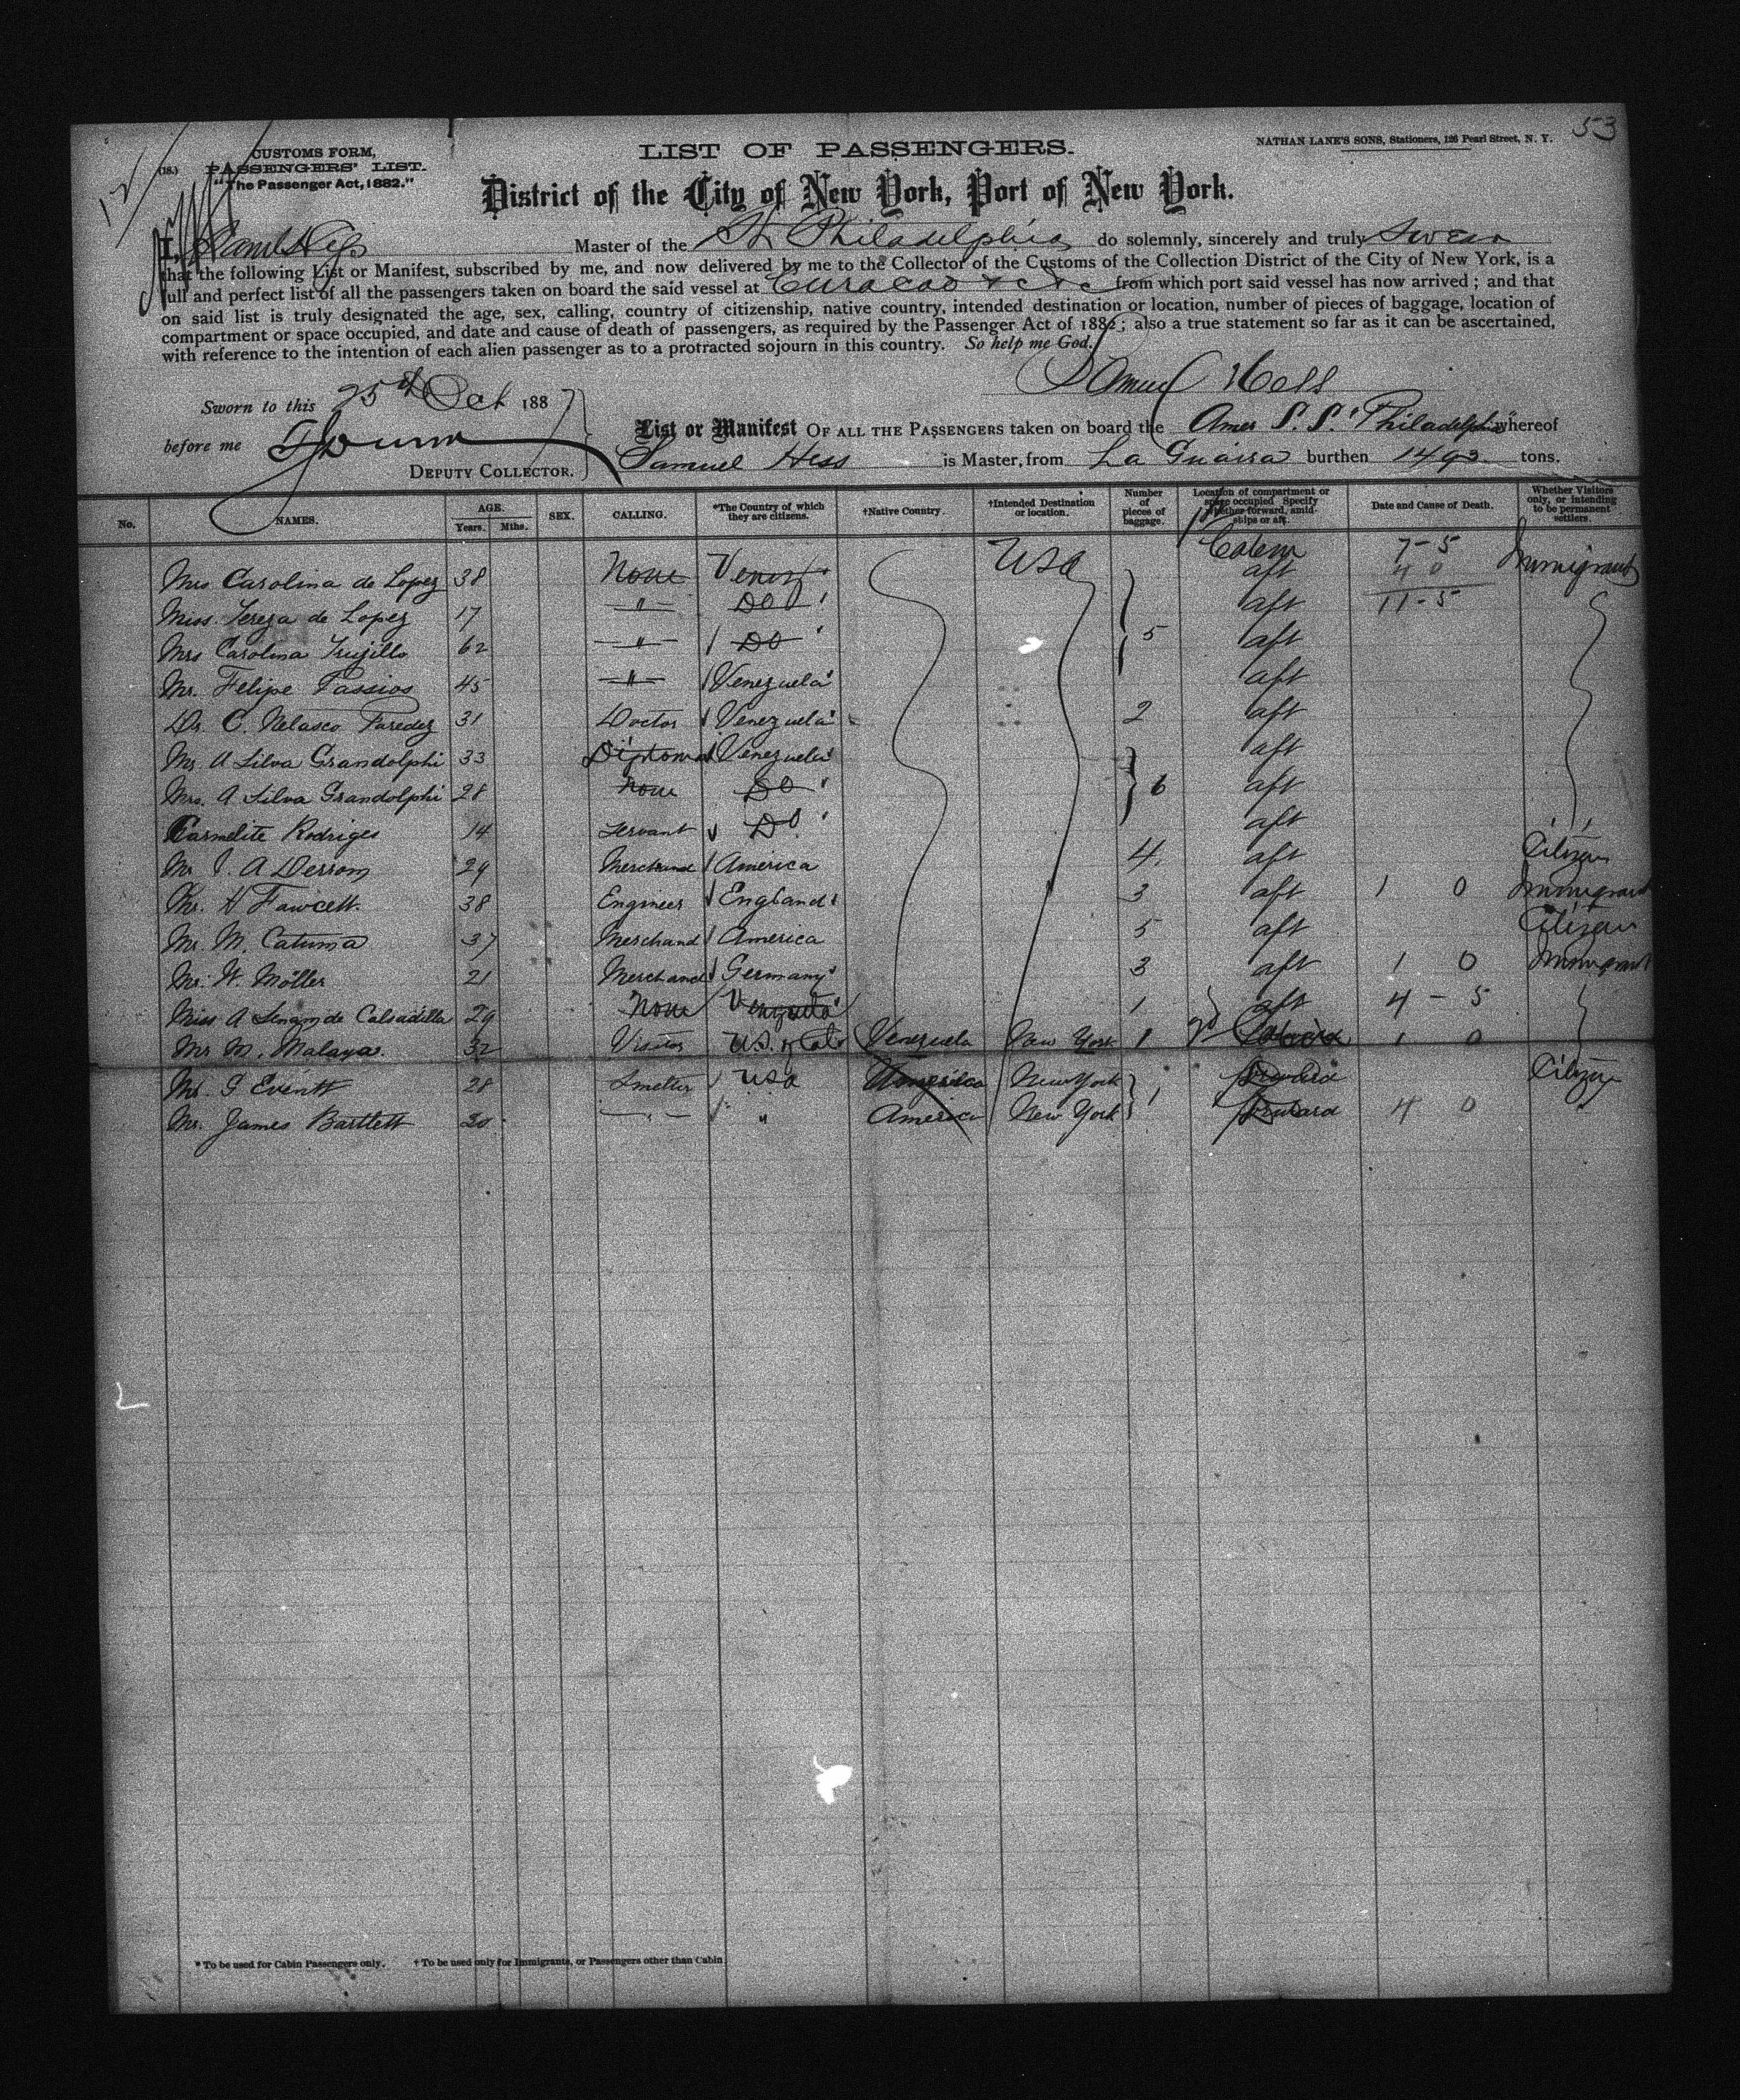 53
(18.) CUSTOMS FORM, LIST OF PASSENGERS. NATHAN LANE'S SONS, Stationers, 126 Pearl Street, N. Y.
PASSENGERS' LIST.
"The Passenger Act, 1882."
District of the City of New York, Port of New York.
I, Saml Hess Master of the St Philadelphia do solemnly, sincerely and truly swear
that the following List or Manifest, subscribed by me, and now delivered by me to the Collector of the Customs of the Collection District of the City of New York, is a
full and perfect list of all the passengers taken on board the said vessel at Curacao &c &c from which port said vessel has now arrived; and that
on said list is truly designated the age, sex, calling, country of citizenship, native country, intended destination or location, number of pieces of baggage, location of
compartment or space occupied, and date and cause of death of passengers, as required by the Passenger Act of 1882; also a true statement so far as it can be ascertained,
with reference to the intention of each alien passenger as to a protracted sojourn in this country. So help me God.
Samuel Hess
Sworn to this 25th Oct 1887
before me
DEPUTY COLLECTOR.
List or Manifest OF ALL THE PASSENGERS taken on board the Amer S.S. "Philadelphia" whereof
Samuel Hess is Master, from La Guaira burthen 1493 tons.
No. NAMES. AGE. Years. Mths. SEX. CALLING. *The Country of which they are citizens. †Native Country. †Intended Destination or location. Number of pieces of baggage. Location of compartment or space occupied Specify whether forward, amidships or aft. Date and Cause of Death. Whether Visitors only, or intending to be permanent settlers.
7-5
Mrs Carolina de Lopez 38 None Venez USA aft 4 0 Immigrant
Miss. Tereza de Lopez 17 " Do aft 11-5
Mrs Carolina Trujillo 62 " Do 5 aft
Mr. Felipe Passios 45 " Venezuela aft
Dr. C. Velasco Paredez 31 Doctor Venezuela 2 aft
Mr. A Silva Grandolphi 33 Diplomat Venezuela aft
Mrs. A Silva Grandolphi 28 None Do 6 aft
Carmelite Rodriges 14 Servant Do aft
Mr J. A Derrom 29 Merchand America 4. aft Citizen
Mr. H Fawcett. 38 Engineer England 3 aft 1 0 Immigrant
Mr. M. Catuma 37 Merchand America 5 aft Citizen
Mr. W. Möller 21 Merchand Germany 3 aft 1 0 Immigrant
Miss A de Calsadilla 29 None Venezuela 1 aft 4 - 5
Mr M. Malaya. 32 Visitor U.S. of Col Venezuela New York 1 2d 1 0
Mr. G Everitt 28 Smelter USA America New York 1 forward Citizen
Mr. James Bartlett 30 " " America New York forward 4 0
* To be used for Cabin Passengers only. † To be used only for Immigrants, or Passengers other than Cabin